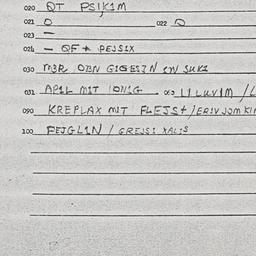 020 QT PSIKIM
021 O 022 O
023 —
024 — QF + PEJSIX
030 MƎR OBN GIGESIN IN SUKI
031 APIL MIT IONIG 063 11 LUVIM /L
090 KREPLAX MIT FLEJS+/ERIV JOM KI
100 FEJGLIN / GREJSI XALIS